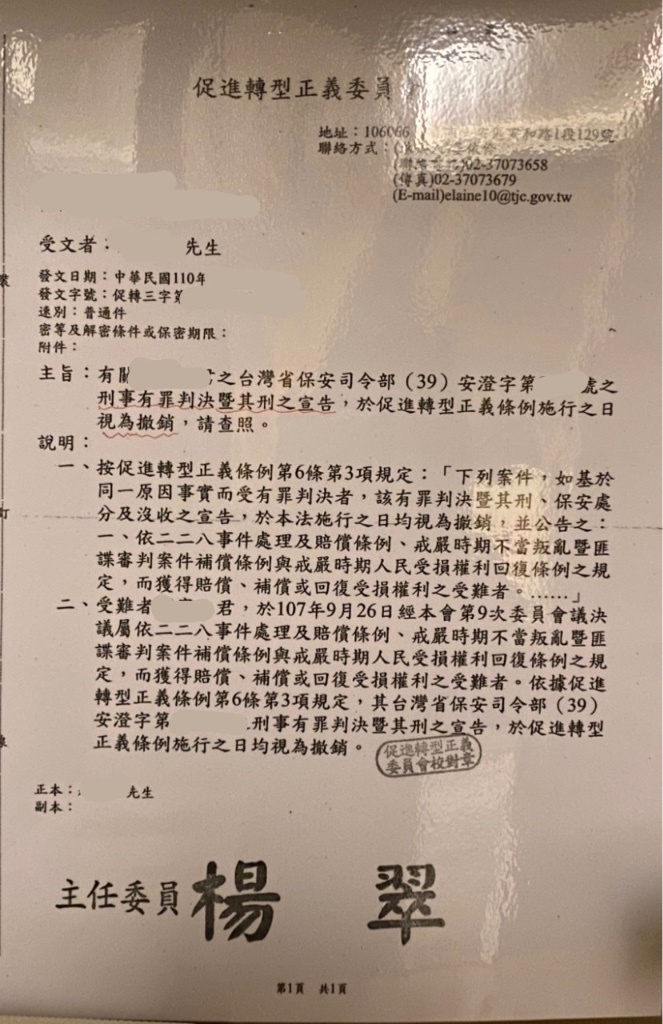 促進轉型正義委員
地址：106066 和路1段129號
聯絡方式：(
02-37073658
(傳真)02-37073679
(E-mail)elaine10@tjc.gov.tw
受文者： 先生
發文日期：中華民國110年
發文字號：促轉三字
速別：普通件
密等及解密條件或保密期限：
附件：
主旨：有關 之台灣省保安司令部（39）安澄字第 號之
刑事有罪判決暨其刑之宣告，於促進轉型正義條例施行之日
視為撤銷，請查照。
說明：
一、按促進轉型正義條例第6條第3項規定：「下列案件，如基於
同一原因事實而受有罪判決者，該有罪判決暨其刑、保安處
分及沒收之宣告，於本法施行之日均視為撤銷，並公告之：
一、依二二八事件處理及賠償條例、戒嚴時期不當叛亂暨匪
諜審判案件補償條例與戒嚴時期人民受損權利回復條例之規
定，而獲得賠償、補償或回復受損權利之受難者。……」
二、受難者 君，於107年9月26日經本會第9次委員會議決
議屬依二二八事件處理及賠償條例、戒嚴時期不當叛亂暨匪
諜審判案件補償條例與戒嚴時期人民受損權利回復條例之規
定，而獲得賠償、補償或回復受損權利之受難者。依據促進
轉型正義條例第6條第3項規定，其台灣省保安司令部（39）
安澄字第 刑事有罪判決暨其刑之宣告，於促進轉型
正義條例施行之日均視為撤銷。
促進轉型正義
委員會校對章
正本： 先生
副本：
主任委員 楊 翠
第1頁 共1頁